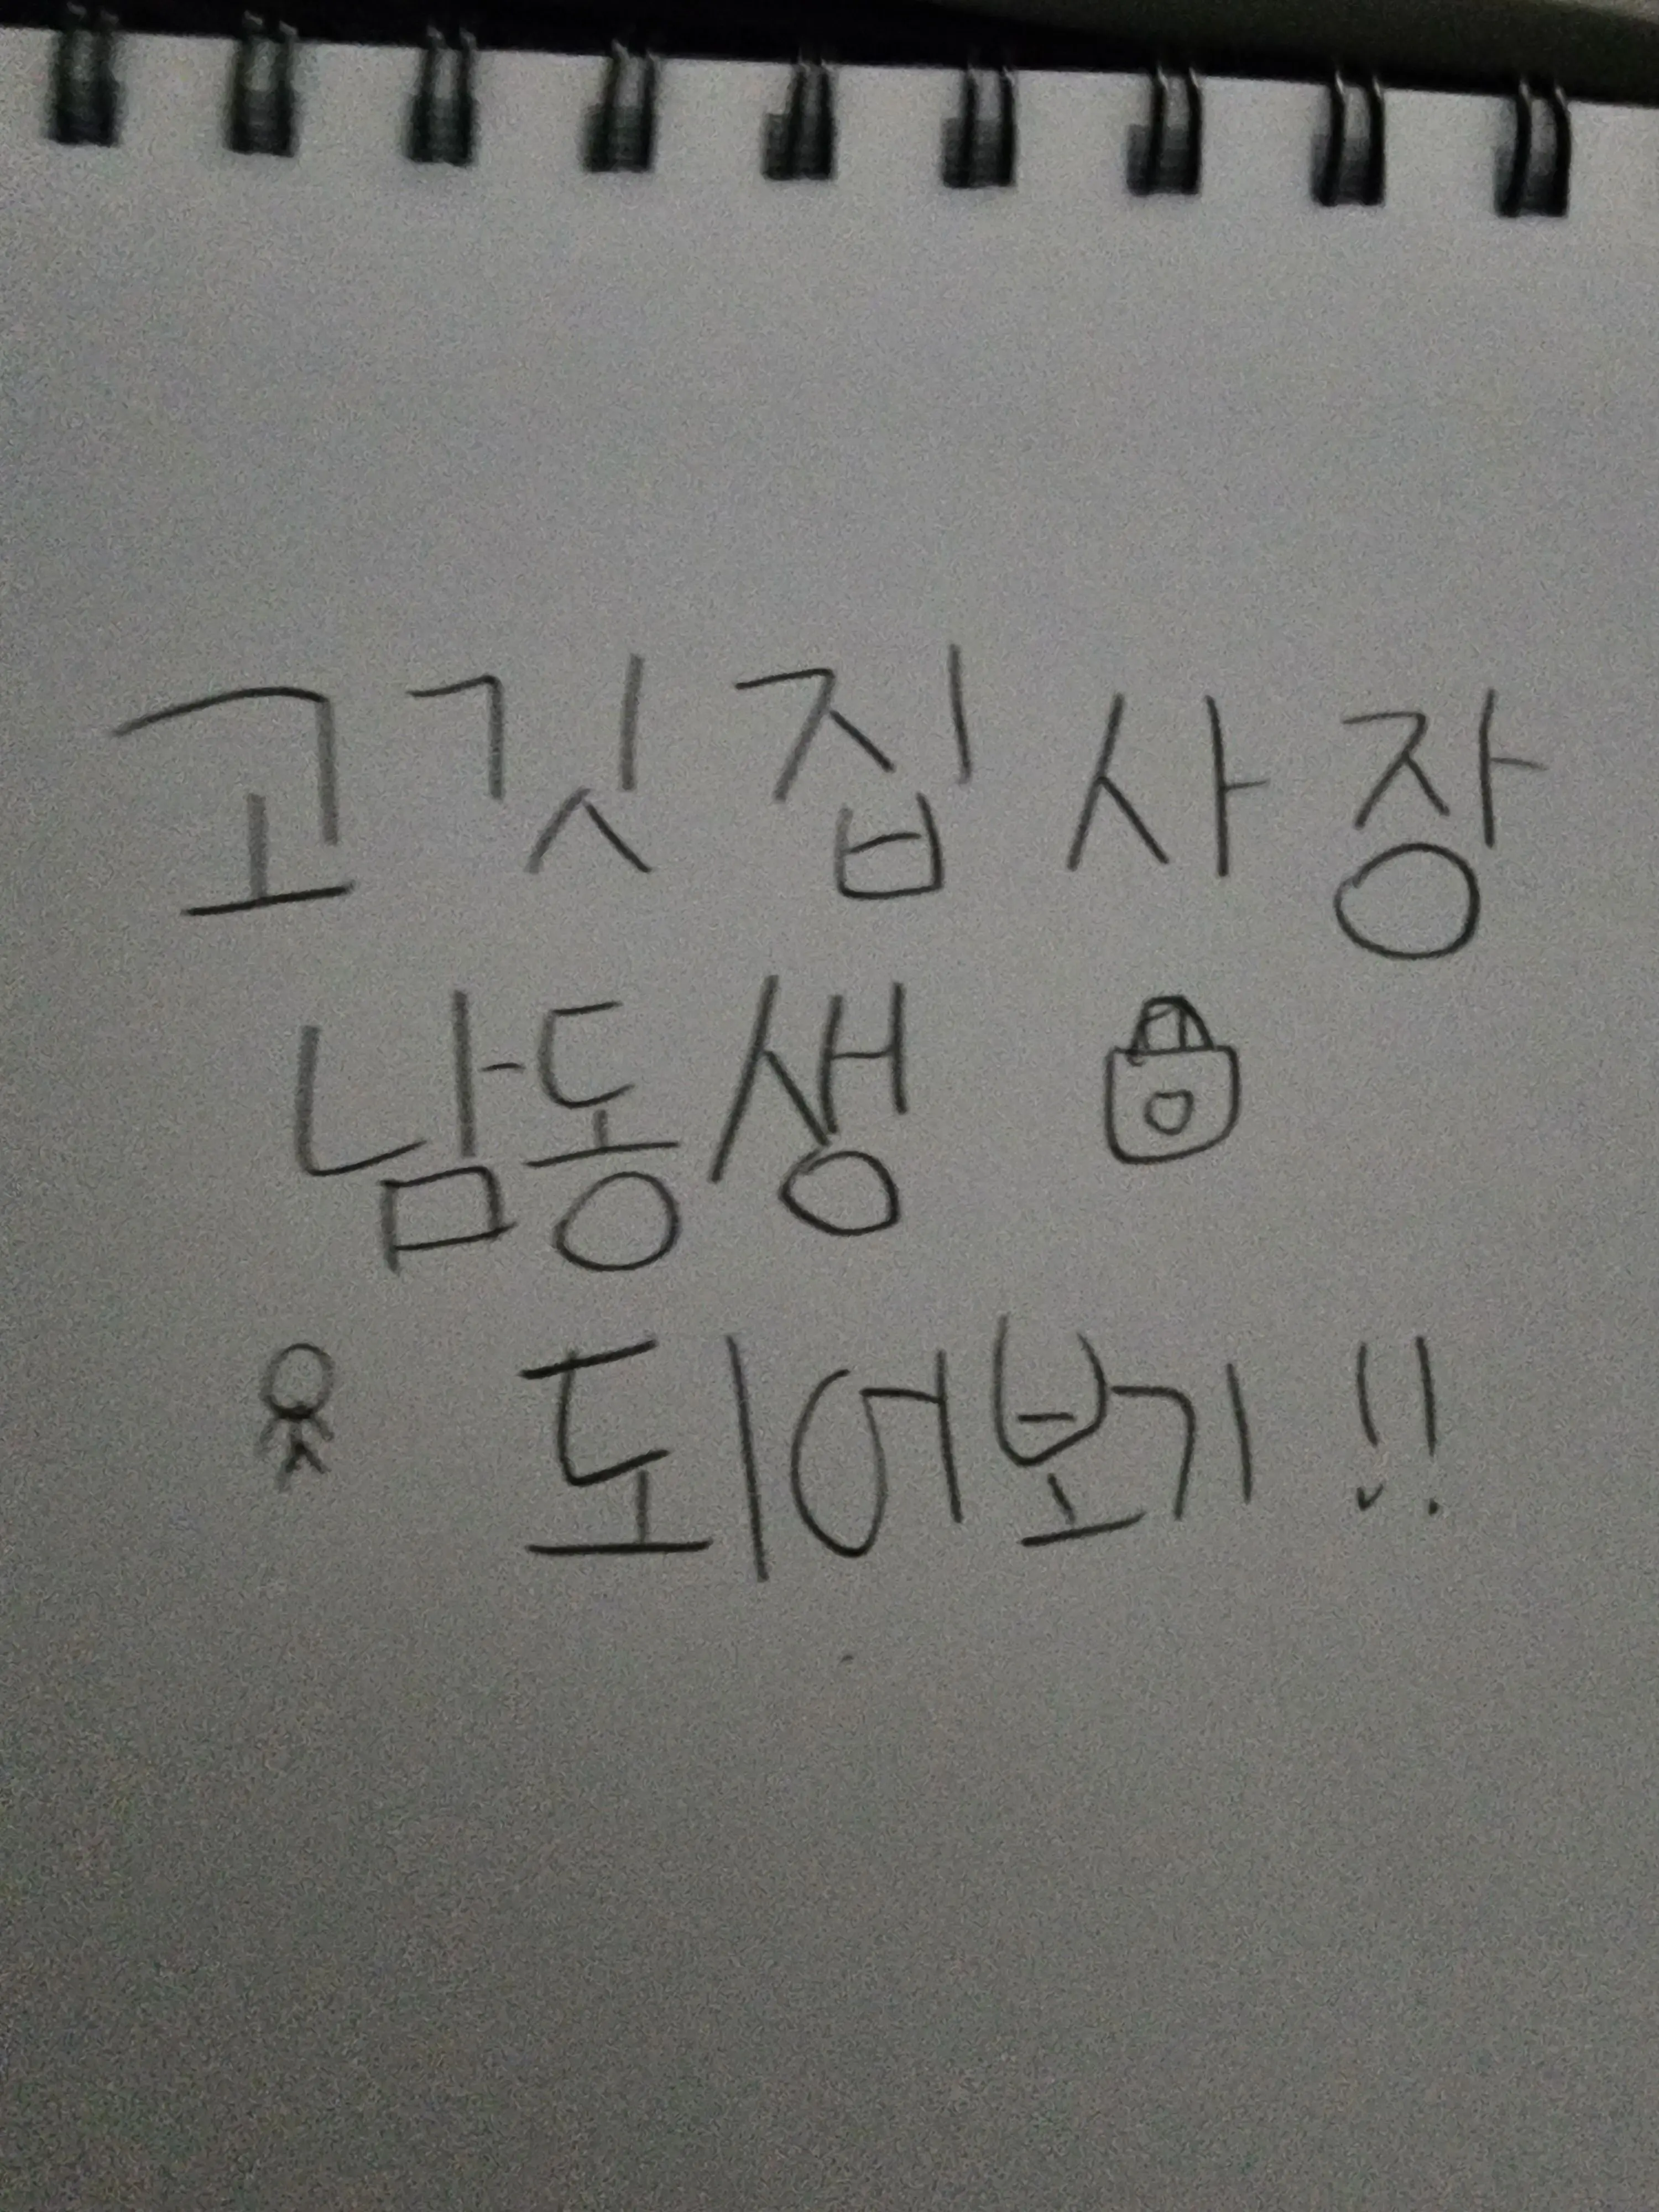 고깃집 사장
남동생
되어보기!!